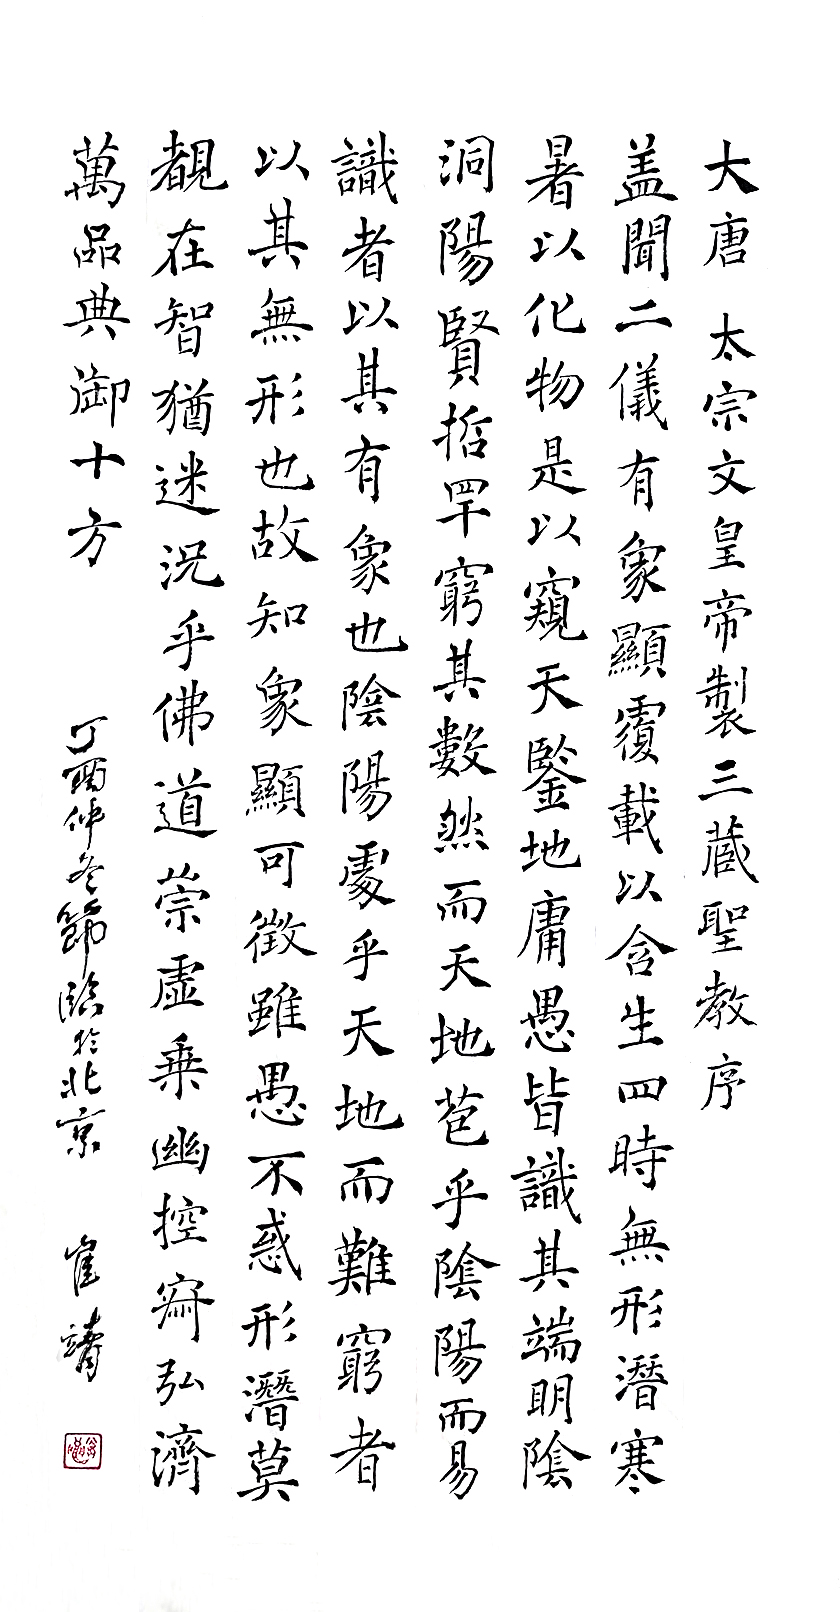 大唐 太宗文皇帝製三蔵聖教序
盖聞二儀有象顯覆載以含生四時無形潛寒
暑以化物是以窺天鑒地庸愚皆識其端明陰
洞陽賢哲罕窮其數然而天地苞乎陰陽而易
識者以其有象也陰陽處乎天地而難窮者
以其無形也故知象顯可徴雖愚不惑形潛莫
覩在智猶迷況乎佛道崇虛乗幽控寂弘濟
萬品典御十方
丁酉仲冬節臨於北京 崔靖